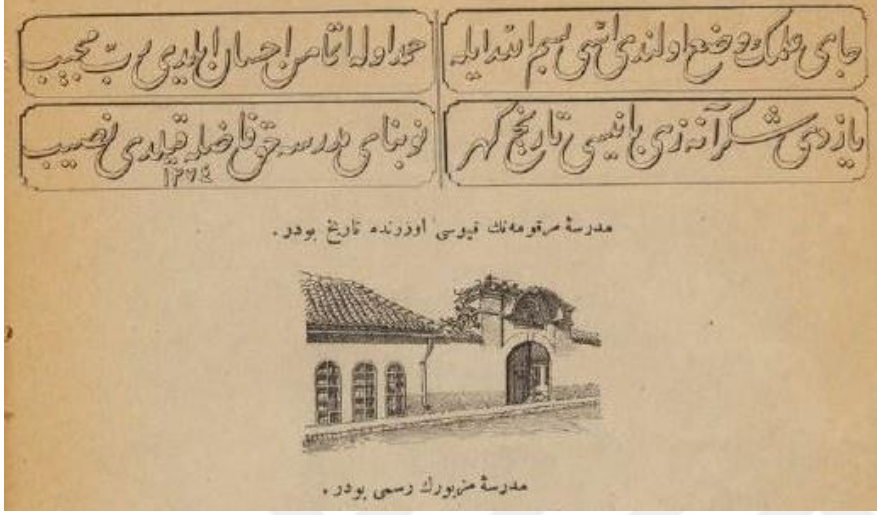 جای علمك وضع اولندی اسی بسم الله ایله
حمد اوله اتمامن احسان ایلدی رب مجیب
یازدی شکرانه بانیسی تاریخ کهر
نوبنای مدرسه حق فاضله قیلدی نصیب
١٢٦٤
مدرسهٔ مرقومه‌نك قپوسی اوزرنده تاریخ بودر .
مدرسهٔ مزبورك رسمی بودر .